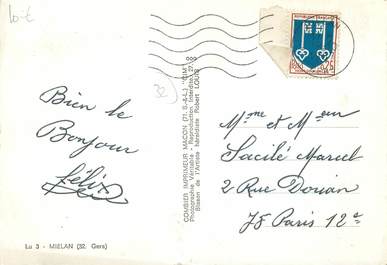 10-E
32
REPUBLIQUE FRANÇAISE
0,25
Bien le
Bonjour
Félix
COMBIER IMPRIMEUR MACON (71. S.-&-L.) "CIM"
Photographie Véritable - Reproduction Interdite
Blason de l'Artiste héraldiste Robert LOUIS
Mme et Meur
Sacilé Marcel
2 Rue Dorian
75 Paris 12e
Lu 3 - MIELAN (32. Gers)